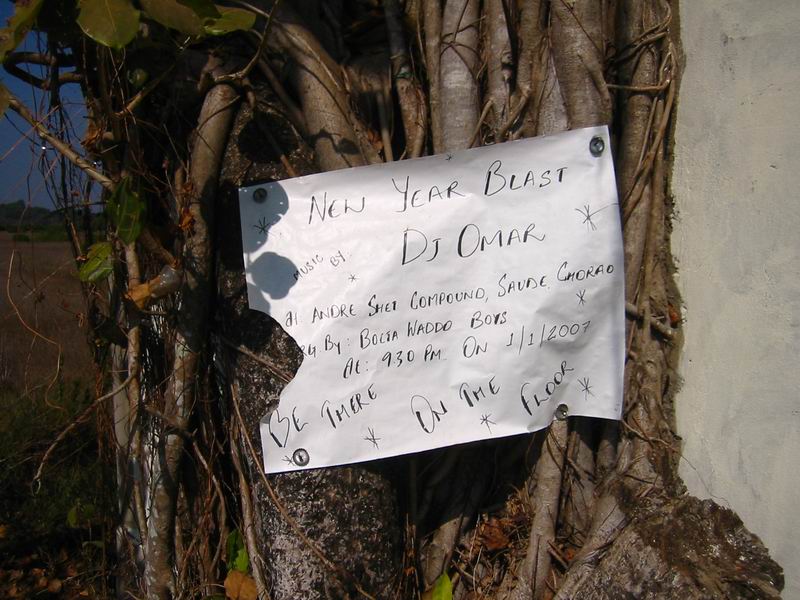 NEW YEAR BLAST
MUSIC BY: DJ OMAR
At. ANDRE SHET COMPOUND, SAUDE, CHORAO
RG BY: BOCIA WADDO BOYS
At: 9.30 PM. ON 1/1/2007
BE THERE ON THE FLOOR